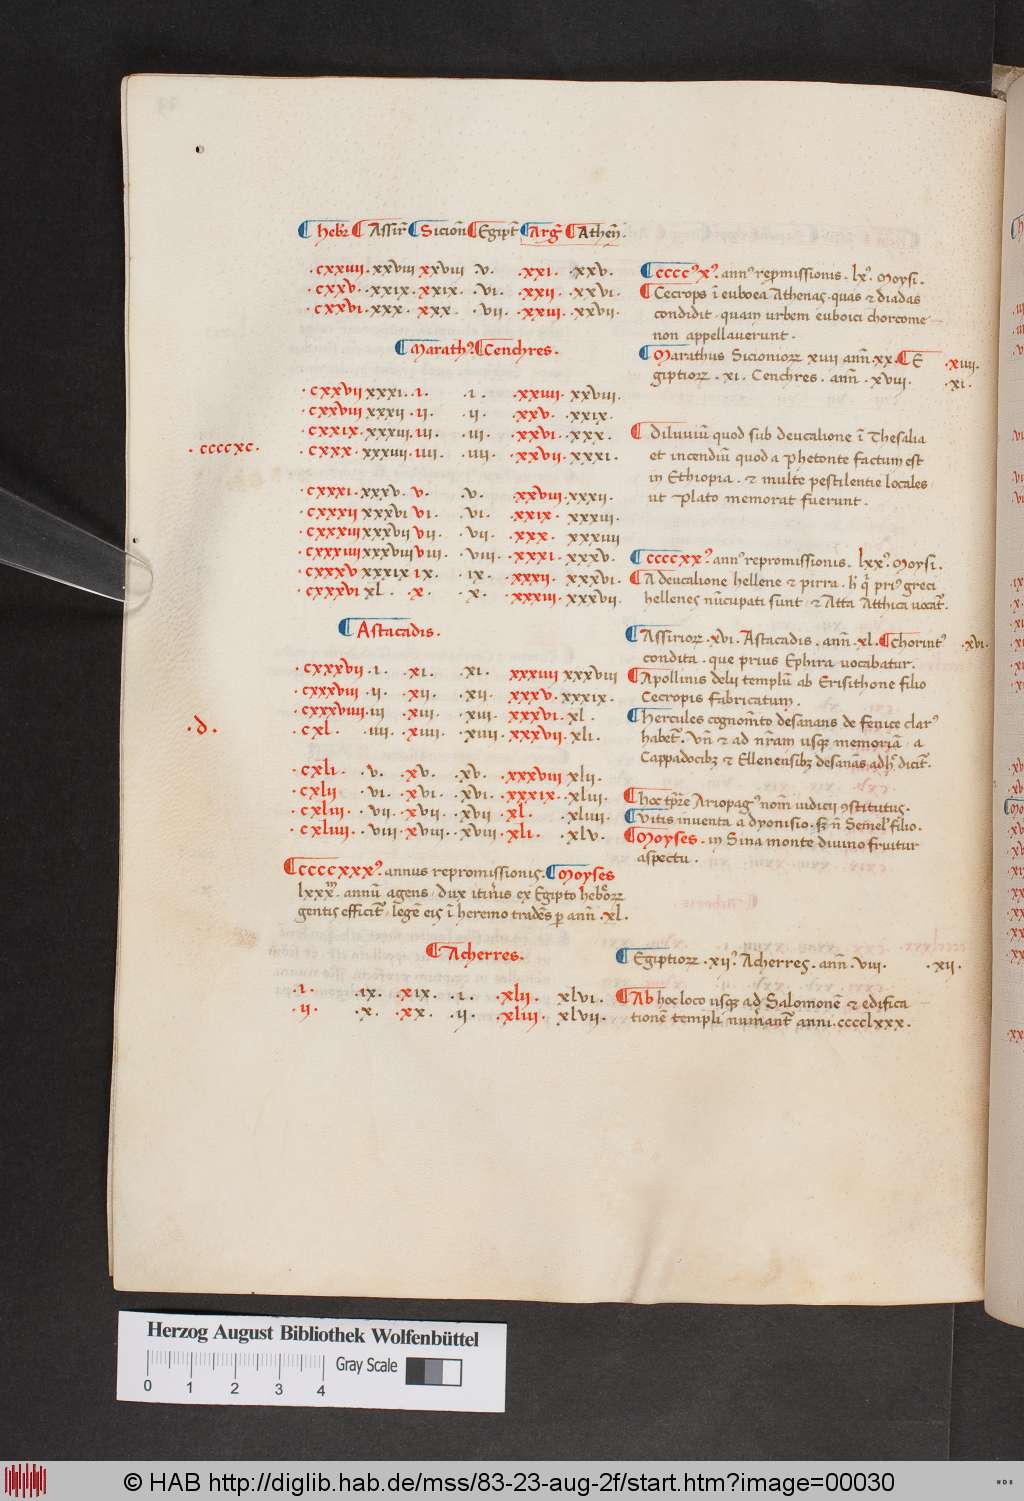 ¶ hebꝛ ¶ Assir̄ ¶ Sicion̄ ¶ Egipt̄ ¶ Arg̅ ¶ Athen̄.
.cxxiiii. xxviii xxviii .v. .xxi. .xxv.
.cxxv. .xxix. xxix. .vi. .xxii. .xxvi.
.cxxvi. xxx. xxx. .vii. .xxiii. xxvii.
¶ Marathꝰ ¶ Cenchres.
.cxxvii xxxi. .i. .i. .xxiiii. xxviii.
.cxxviii xxxii .ii. .ii. .xxv. .xxix.
.cxxix. xxxiii iii. .iii. .xxvi. .xxx.
.ccccxc. .cxxx. xxxiiii iiii. .iiii. .xxvii. xxxi.
.cxxxi. xxxv. v. .v. .xxviii. xxxii.
.cxxxii xxxvi vi. .vi. .xxix. xxxiii.
.cxxxiii xxxvii vii. .vii. .xxx. xxxiiii
.cxxxiiii xxxviii viii. .viii. .xxxi. xxxv.
.cxxxv xxxix ix. .ix. .xxxii. xxxvi.
.cxxxvi xl. .x. .x. .xxxiii. xxxvii.
¶ Astacadis.
.cxxxvii .i. .xi. .xi. xxxiiii xxxviii
.cxxxviii .ii. .xii. .xii. .xxxv. xxxix.
.cxxxviiii. iii .xiii. .xiii. .xxxvi. xl.
.d. .cxl. .iiii. .xiiii. .xiiii .xxxvii. xli.
.cxli. .v. .xv. .xv. .xxxviii xlii.
.cxlii .vi. .xvi. .xvi. .xxxix. .xliii.
.cxliii. .vii. .xvii. .xvii .xl. .xliiii.
.cxliiii. .viii .xviii. .xviii .xli. .xlv.
¶ ccccxxxꝰ. annus repromissionis. ¶ Moyses
lxxx. annū agens. dux itin̄is ex Egipto hebꝛoꝝ
gentis efficit̄. legē eis ī heremo tradēs ꝑ ann̄ .xl.
¶ Acherres.
.i. .ix. .xix. .i. .xlii. xlvi.
.ii. .x. .xx. .ii. .xliii. xlvii.
¶ ccccꝰxꝰ. annꝰ repmissionis. lxꝰ. Moysi.
¶ Cecrops ī euboea Athenas. quas ⁊ diadas
condidit. quam urbem euboici chorcome
non appellauerunt.
¶ Marathus Sicionioꝝ xiii ann̄. xx. ¶ E .xiii.
giptioꝝ. .xi. Cenchres. ann̄. xviii. .xi.
¶ Diluuiū quod sub deucalione ī Thesalia
et incendiū quod a Phetonte factum est
in Ethiopia. ⁊ multe pestilentie locales
ut Plato memorat fuerunt.
¶ ccccxxꝰ. annꝰ repromissionis. lxxꝰ. Moysi.
¶ A deucalione hellene ⁊ pirra. hī q̄ priꝰ greci
hellenes nūcupati sunt. ⁊ Atta Atthica uocat̄.
¶ Assirioꝝ .xvi. Astacadis. ann̄. xl. ¶ Chorintꝰ .xvi.
condita. que prius Ephira uocabatur.
¶ Apollinis delii templū ab Erisithone filio
Cecropis fabricatum.
¶ Hercules cognom̄to desanans de fenice clarꝰ
habet̄. Vn̄ ⁊ ad nr̄am usqꝫ memoriā. a
Cappadocibꝫ ⁊ Ellenensibꝫ desanās adh̄ dicit̄.
¶ hoc tꝑre Ariopagꝰ nom̄ iudicii ꝯstitutus.
¶ Vitis inuenta a dyonisio. sꝫ n̄ Semelꝰ filio.
¶ Moyses. in Sina monte diuino fruitur
aspectu.
¶ Egiptioꝝ .xiiꝰ. Acherres. ann̄. viii. .xii.
¶ Ab hoc loco usqꝫ ad Salomonē ⁊ edifica
tionē templi num̄ant̄ anni. cccclxxx.
Herzog August Bibliothek Wolfenbüttel
Gray Scale
0 1 2 3 4
© HAB http://diglib.hab.de/mss/83-23-aug-2f/start.htm?image=00030